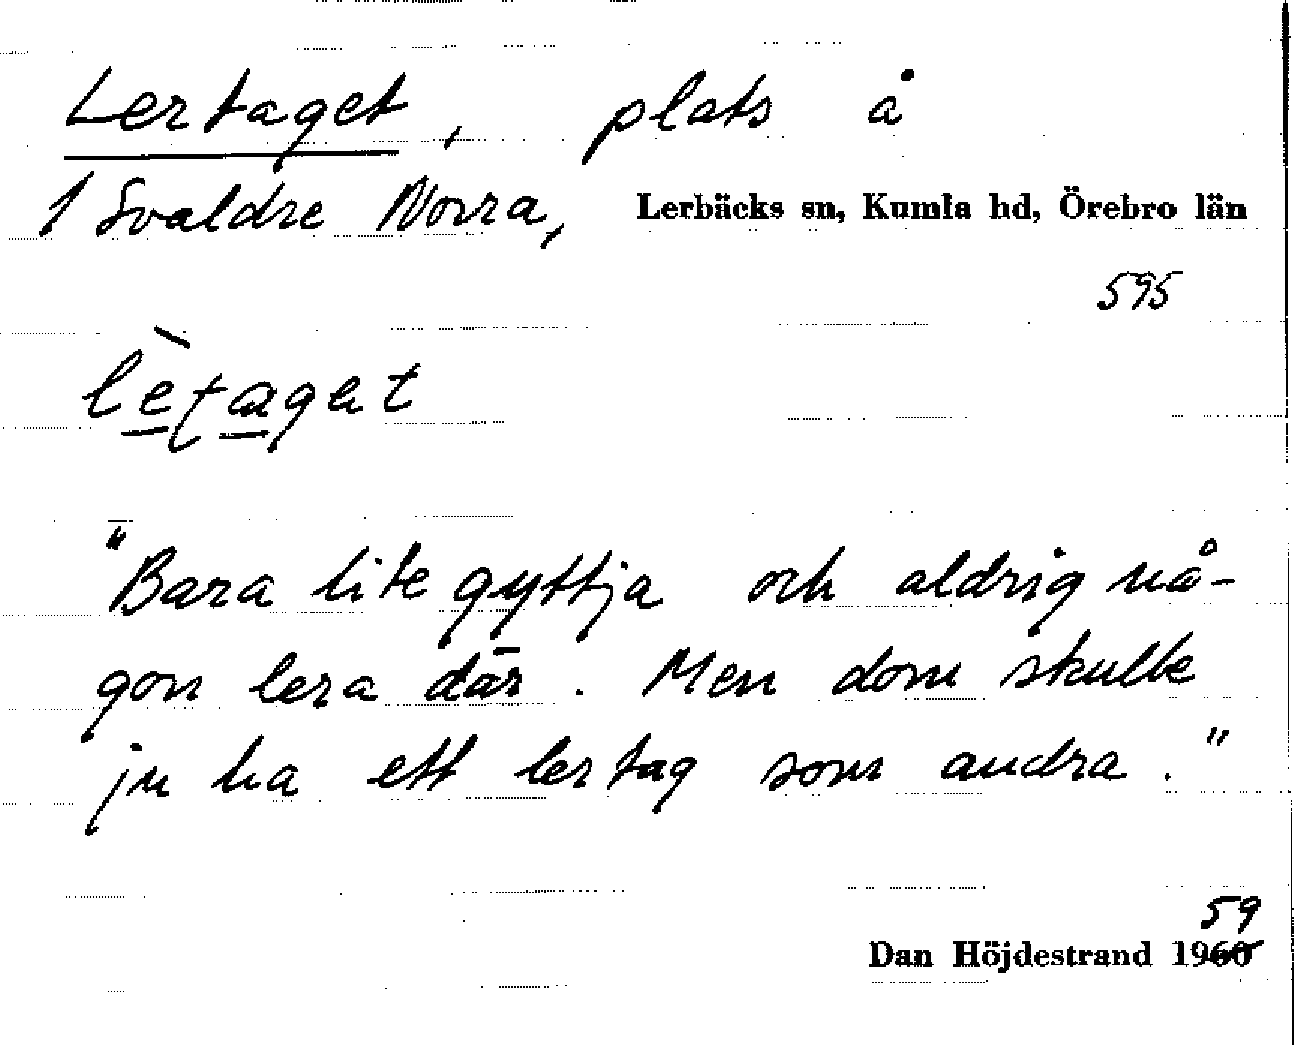 Lertaget, plats å
1 Svaldre Norra, Lerbäcks sn, Kumla hd, Örebro län
595
lètagat
"Bara lite gyttja och aldrig nå-
gon lera där. Men dom skulle
ju ha ett lertag som andra."
59
Dan Höjdestrand 1960